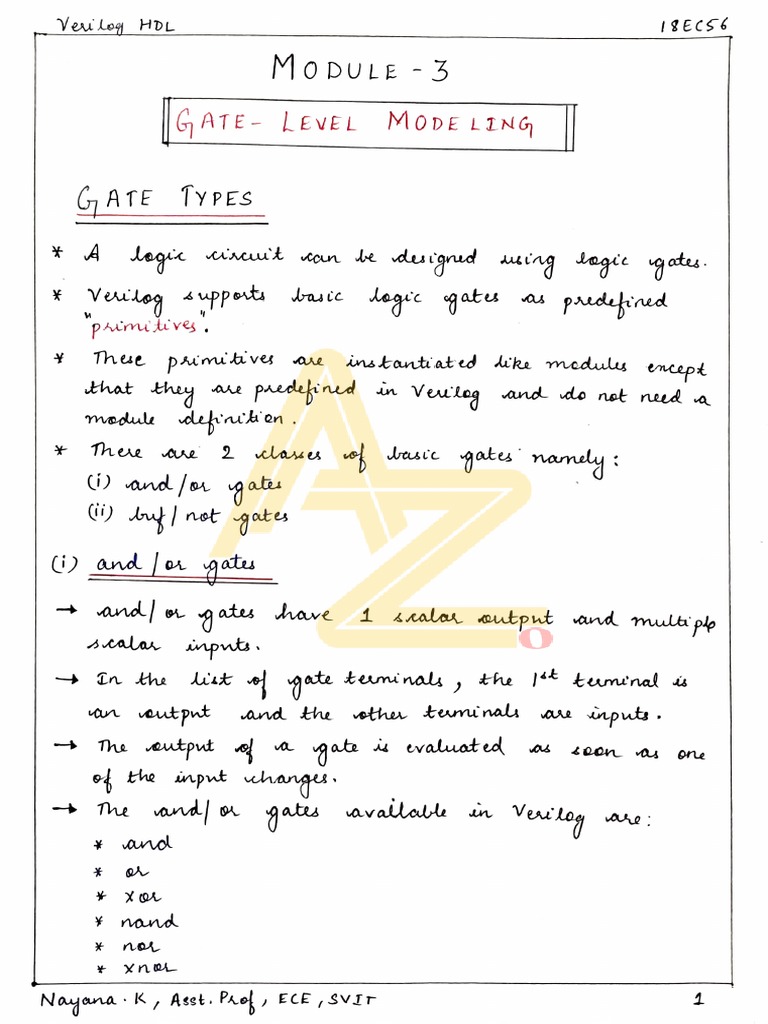 Verilog HDL 18EC56
MODULE - 3
GATE- LEVEL MODELING
GATE TYPES
* A logic circuit can be designed using logic gates.
* Verilog supports basic logic gates as predefined
"primitives".
* These primitives are instantiated like modules except
that they are predefined in Verilog and do not need a
module definition.
* There are 2 classes of basic gates namely:
(i) and/or gates
(ii) buf/not gates
(i) and/or gates
→ and/or gates have 1 scalar output and multiple
scalar inputs.
→ In the list of gate terminals, the 1st terminal is
an output and the other terminals are inputs.
→ The output of a gate is evaluated as soon as one
of the input changes.
→ The and/or gates available in Verilog are:
* and
* or
* xor
* nand
* nor
* xnor
AZO
Nayana. K, Asst. Prof, ECE, SVIT 1